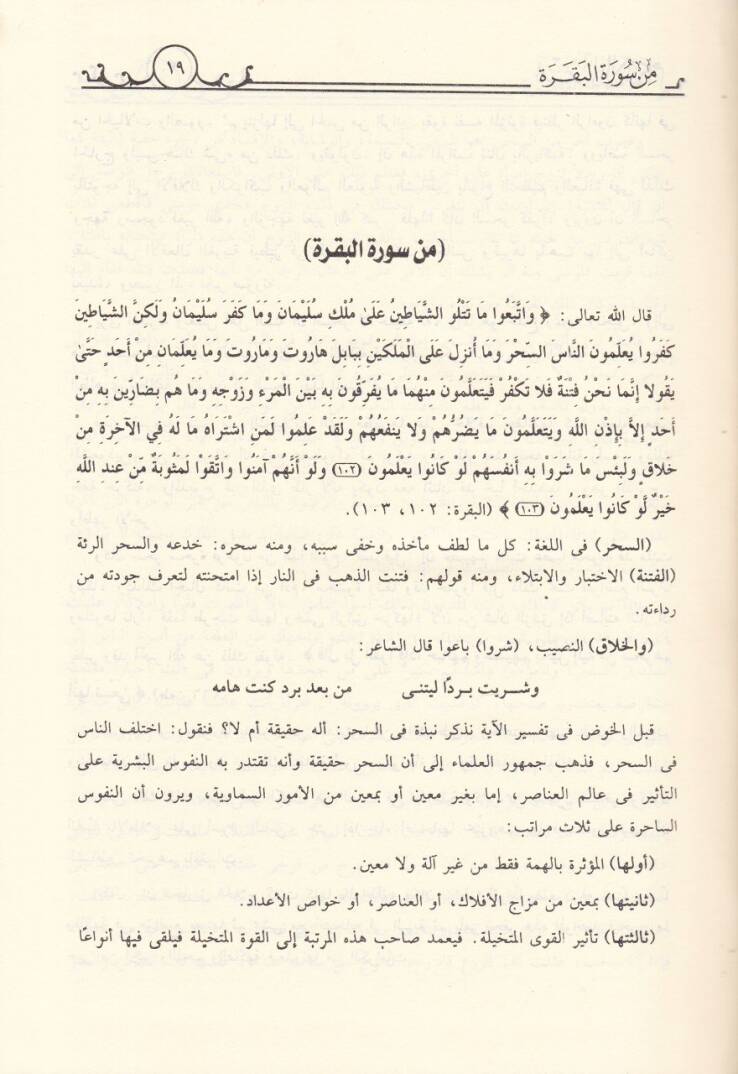 من سورة البقرة
١٩
(من سورة البقرة)
قال الله تعالى: ﴿ وَاتَّبَعُوا مَا تَتْلُو الشَّيَاطِينُ عَلَىٰ مُلْكِ سُلَيْمَانَ وَمَا كَفَرَ سُلَيْمَانُ وَلَكِنَّ الشَّيَاطِينَ
كَفَرُوا يُعَلِّمُونَ النَّاسَ السِّحْرَ وَمَا أُنزِلَ عَلَى الْمَلَكَيْنِ بِبَابِلَ هَارُوتَ وَمَارُوتَ وَمَا يُعَلِّمَانِ مِنْ أَحَدٍ حَتَّىٰ
يَقُولا إِنَّمَا نَحْنُ فِتْنَةٌ فَلا تَكْفُرْ فَيَتَعَلَّمُونَ مِنْهُمَا مَا يُفَرِّقُونَ بِهِ بَيْنَ الْمَرْءِ وَزَوْجِهِ وَمَا هُم بِضَارِّينَ بِهِ مِنْ
أَحَدٍ إِلاَّ بِإِذْنِ اللَّهِ وَيَتَعَلَّمُونَ مَا يَضُرُّهُمْ وَلا يَنفَعُهُمْ وَلَقَدْ عَلِمُوا لَمَنِ اشْتَرَاهُ مَا لَهُ فِي الآخِرَةِ مِنْ
خَلاقٍ وَلَبِئْسَ مَا شَرَوْا بِهِ أَنفُسَهُمْ لَوْ كَانُوا يَعْلَمُونَ (١٠٢) وَلَوْ أَنَّهُمْ آمَنُوا وَاتَّقَوْا لَمَثُوبَةٌ مِّنْ عِندِ اللَّهِ
خَيْرٌ لَّوْ كَانُوا يَعْلَمُونَ (١٠٣) ﴾ (البقرة: ١٠٢، ١٠٣).
(السحر) فى اللغة: كل ما لطف مأخذه وخفى سببه، ومنه سحره: خدعه والسحر الرئة
(الفتنة) الاختبار والابتلاء، ومنه قولهم: فتنت الذهب فى النار إذا امتحنته لتعرف جودته من
رداءته.
(والخلاق) النصيب، (شروا) باعوا قال الشاعر:
وشريت بردًا ليتنى من بعد برد كنت هامه
قبل الخوض فى تفسير الآية نذكر نبذة فى السحر: أله حقيقة أم لا؟ فنقول: اختلف الناس
فى السحر، فذهب جمهور العلماء إلى أن السحر حقيقة وأنه تقتدر به النفوس البشرية على
التأثير فى عالم العناصر، إما بغير معين أو بمعين من الأمور السماوية، ويرون أن النفوس
الساحرة على ثلاث مراتب:
(أولها) المؤثرة بالهمة فقط من غير آلة ولا معين.
(ثانيتها) بمعين من مزاج الأفلاك، أو العناصر، أو خواص الأعداد.
(ثالثتها) تأثير القوى المتخيلة. فيعمد صاحب هذه المرتبة إلى القوة المتخيلة فيلقى فيها أنواعًا